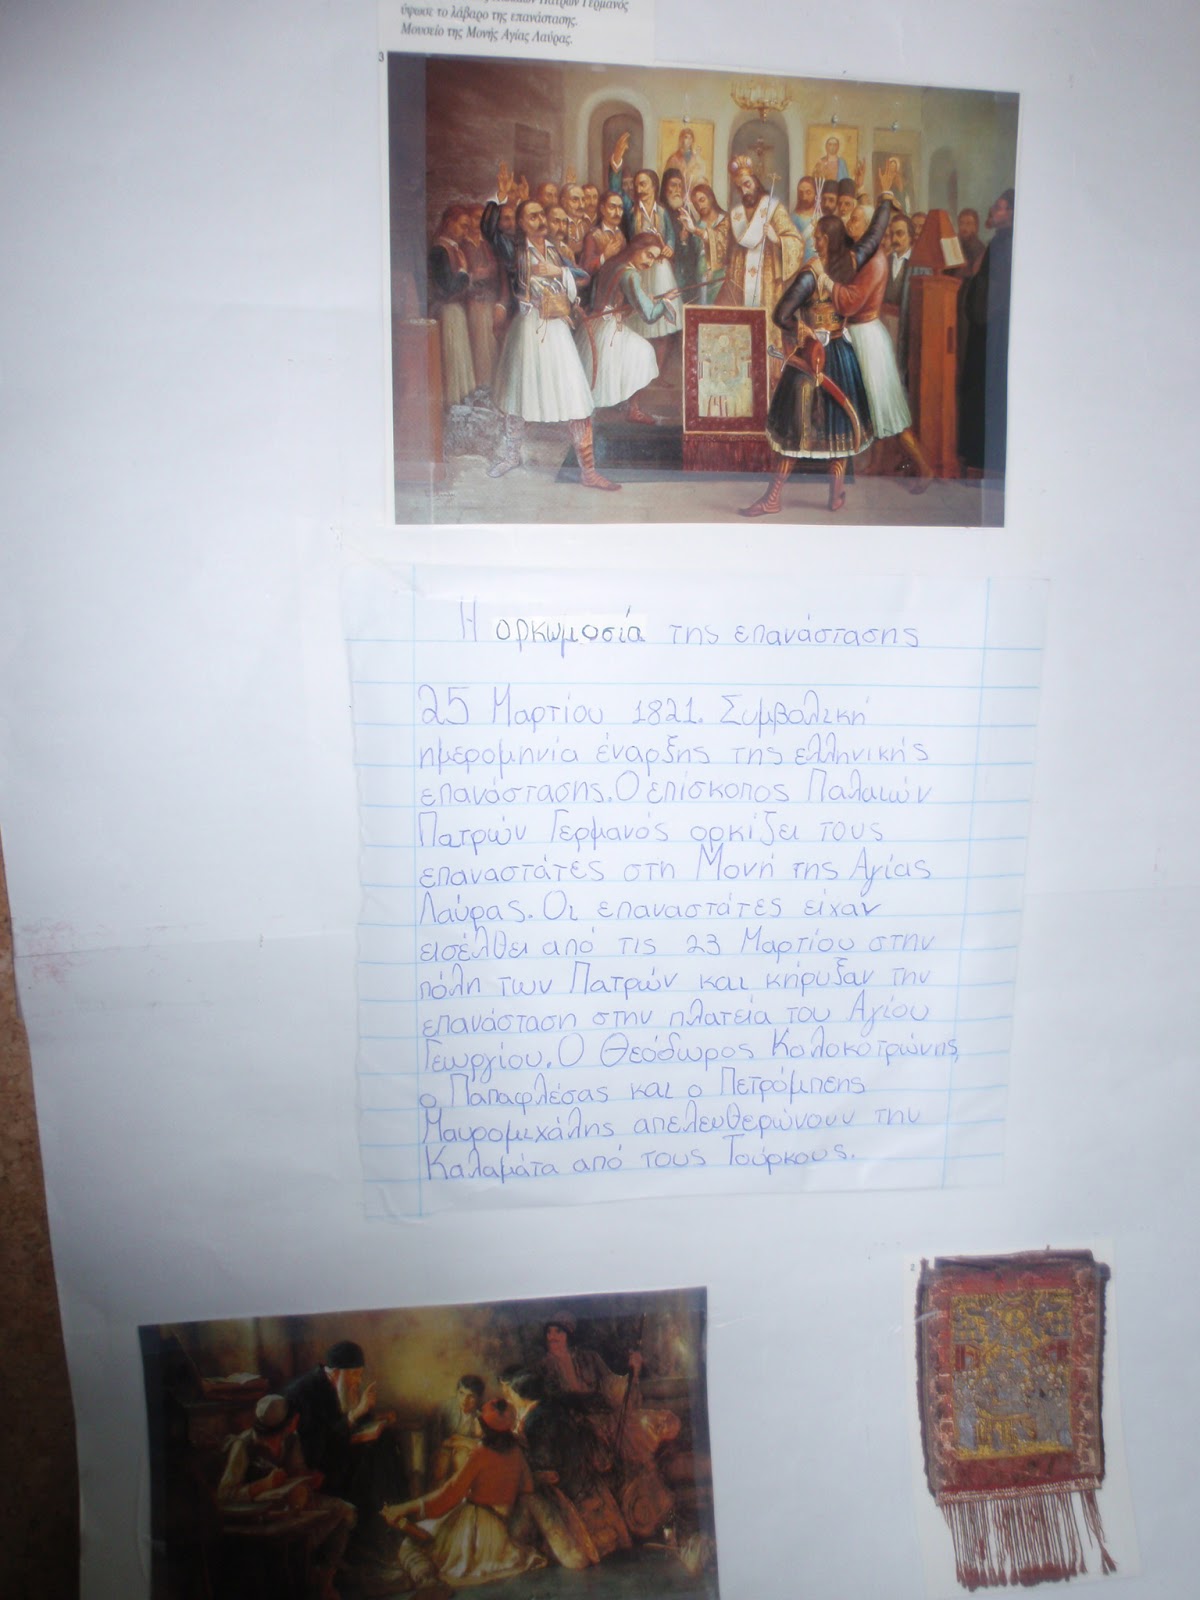 Πατρών Γερμανός
ύψωσε το λάβαρο της επανάστασης.
Μουσείο της Μονής Αγίας Λαύρας.
3
Η ορκωμοσία της επανάστασης
25 Μαρτίου 1821. Συμβολική
ημερομηνία έναρξης της ελληνικής
επανάστασης. Ο επίσκοπος Παλαιών
Πατρών Γερμανός ορκίζει τους
επαναστάτες στη Μονή της Αγίας
Λαύρας. Οι επαναστάτες είχαν
εισέλθει από τις 23 Μαρτίου στην
πόλη των Πατρών και κήρυξαν την
επανάσταση στην πλατεία του Αγίου
Γεωργίου. Ο Θεόδωρος Κολοκοτρώνης,
ο Παπαφλέσας και ο Πετρόμπεης
Μαυρομιχάλης απελευθερώνουν την
Καλαμάτα από τους Τούρκους.
2